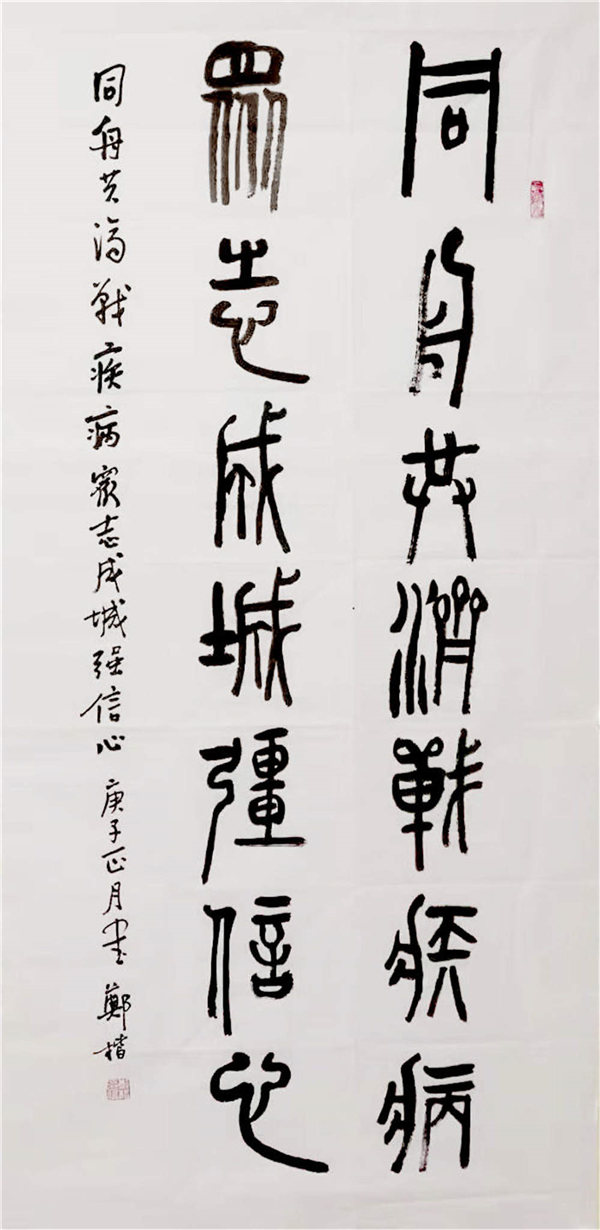 同舟共濟戰疾病
眾志成城彊信心
同舟共濟戰疾病眾志成城强信心 庚子正月書 鄭楷